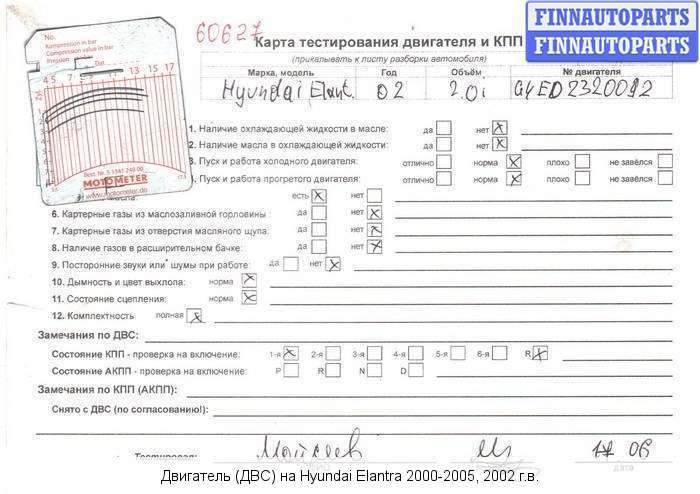 FINNAUTOPARTS
FINNAUTOPARTS
No.
Kompression in bar
Compression value in bar
4.5 7 9 11 13 15 17
Best. Nr. 5 1341 240 00
MOTOMETER
www.motometer.de
60627
Карта тестирования двигателя и КПП
(прикалывать к листу разборки автомобиля)
Марка, модель Год Объём № двигателя
Hyundai Elant. 02 2.0i G4ED2320092
1. Наличие охлаждающей жидкости в масле: да нет X
2. Наличие масла в охлаждающей жидкости: да нет X
3. Пуск и работа холодного двигателя: отлично норма X плохо не завёлся
Пуск и работа прогретого двигателя: отлично норма X плохо не завёлся
есть X нет
6. Картерные газы из маслозаливной горловины: да нет X
7. Картерные газы из отверстия масляного щупа: да нет X
8. Наличие газов в расширительном бачке: да нет X
9. Посторонние звуки или шумы при работе: да нет X
10. Дымность и цвет выхлопа: норма X
11. Состояние сцепления: норма X
12. Комплектность полная X
Замечания по ДВС:
Состояние КПП - проверка на включение: 1-я X 2-я 3-я 4-я 5-я 6-я R X
Состояние АКПП - проверка на включение: P R N D
Замечания по КПП (АКПП):
Снято с ДВС (по согласованию!):
Тестировал: 06
дата
Двигатель (ДВС) на Hyundai Elantra 2000-2005, 2002 г.в.